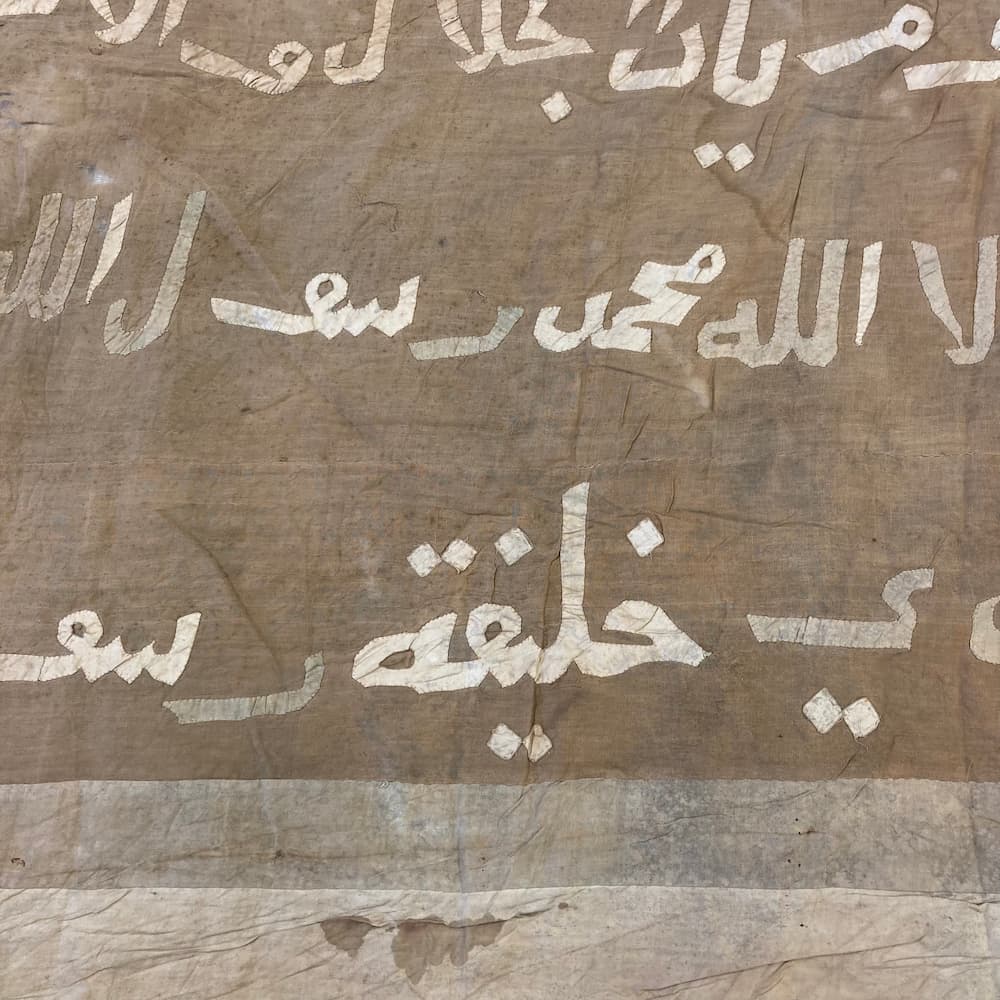 ياذا الجلال و الا
لا الله محمد رسول الله
ي خليفة رسو